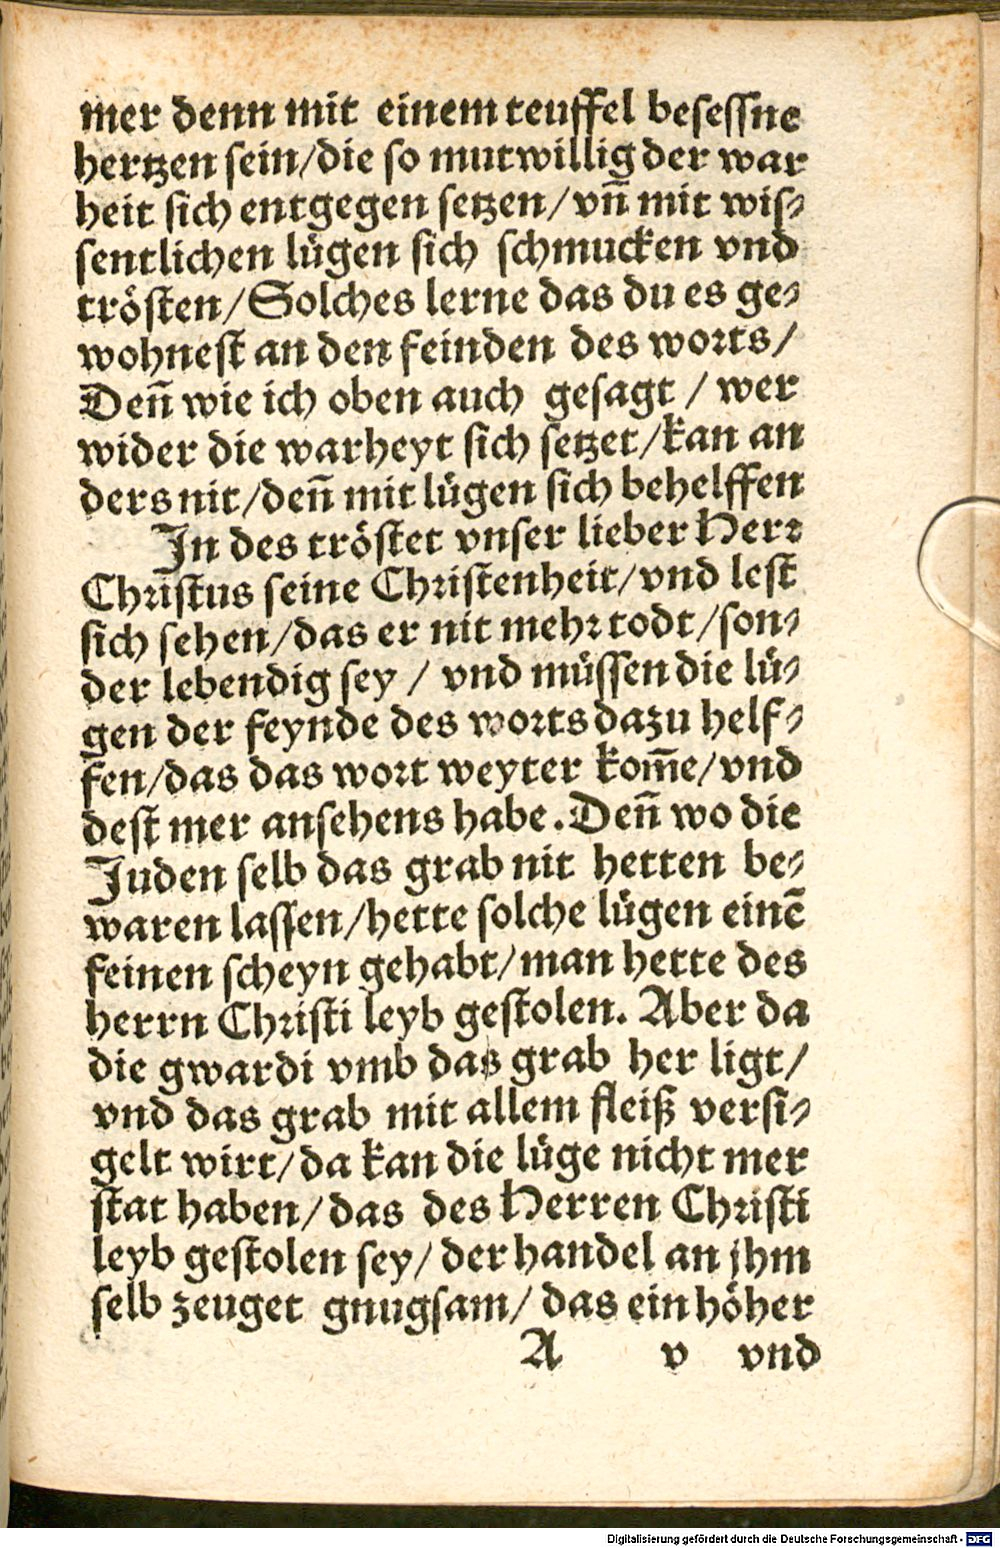 mer denn mit einem teuffel besessne
hertzen sein/die so mutwillig der war
heit sich entgegen setzen/vñ mit wis⸗
sentlichen lügen sich schmucken vnd
trösten/Solches lerne das du es ge⸗
wohnest an den feinden des worts/
Deñ wie ich oben auch gesagt / wer
wider die warheyt sich setzet/kan an
ders nit/deñ mit lügen sich behelffen
In des tröstet vnser lieber Herr
Christus seine Christenheit/vnd lest
sich sehen/das er nit mehr todt/son⸗
der lebendig sey / vnd müssen die lü⸗
gen der feynde des worts dazu helf⸗
fen/das das wort weyter kom̃e/vnd
dest mer ansehens habe. Deñ wo die
Juden selb das grab nit hetten be⸗
waren lassen/hette solche lügen einẽ
feinen scheyn gehabt/man hette des
herrn Christi leyb gestolen. Aber da
die gwardi vmb das grab her ligt/
vnd das grab mit allem fleiß versi⸗
gelt wirt/da kan die lüge nicht mer
stat haben/das des Herren Christi
leyb gestolen sey/der handel an jhm
selb zeuget gnugsam/das ein höher
A v vnd
Digitalisierung gefördert durch die Deutsche Forschungsgemeinschaft - DFG